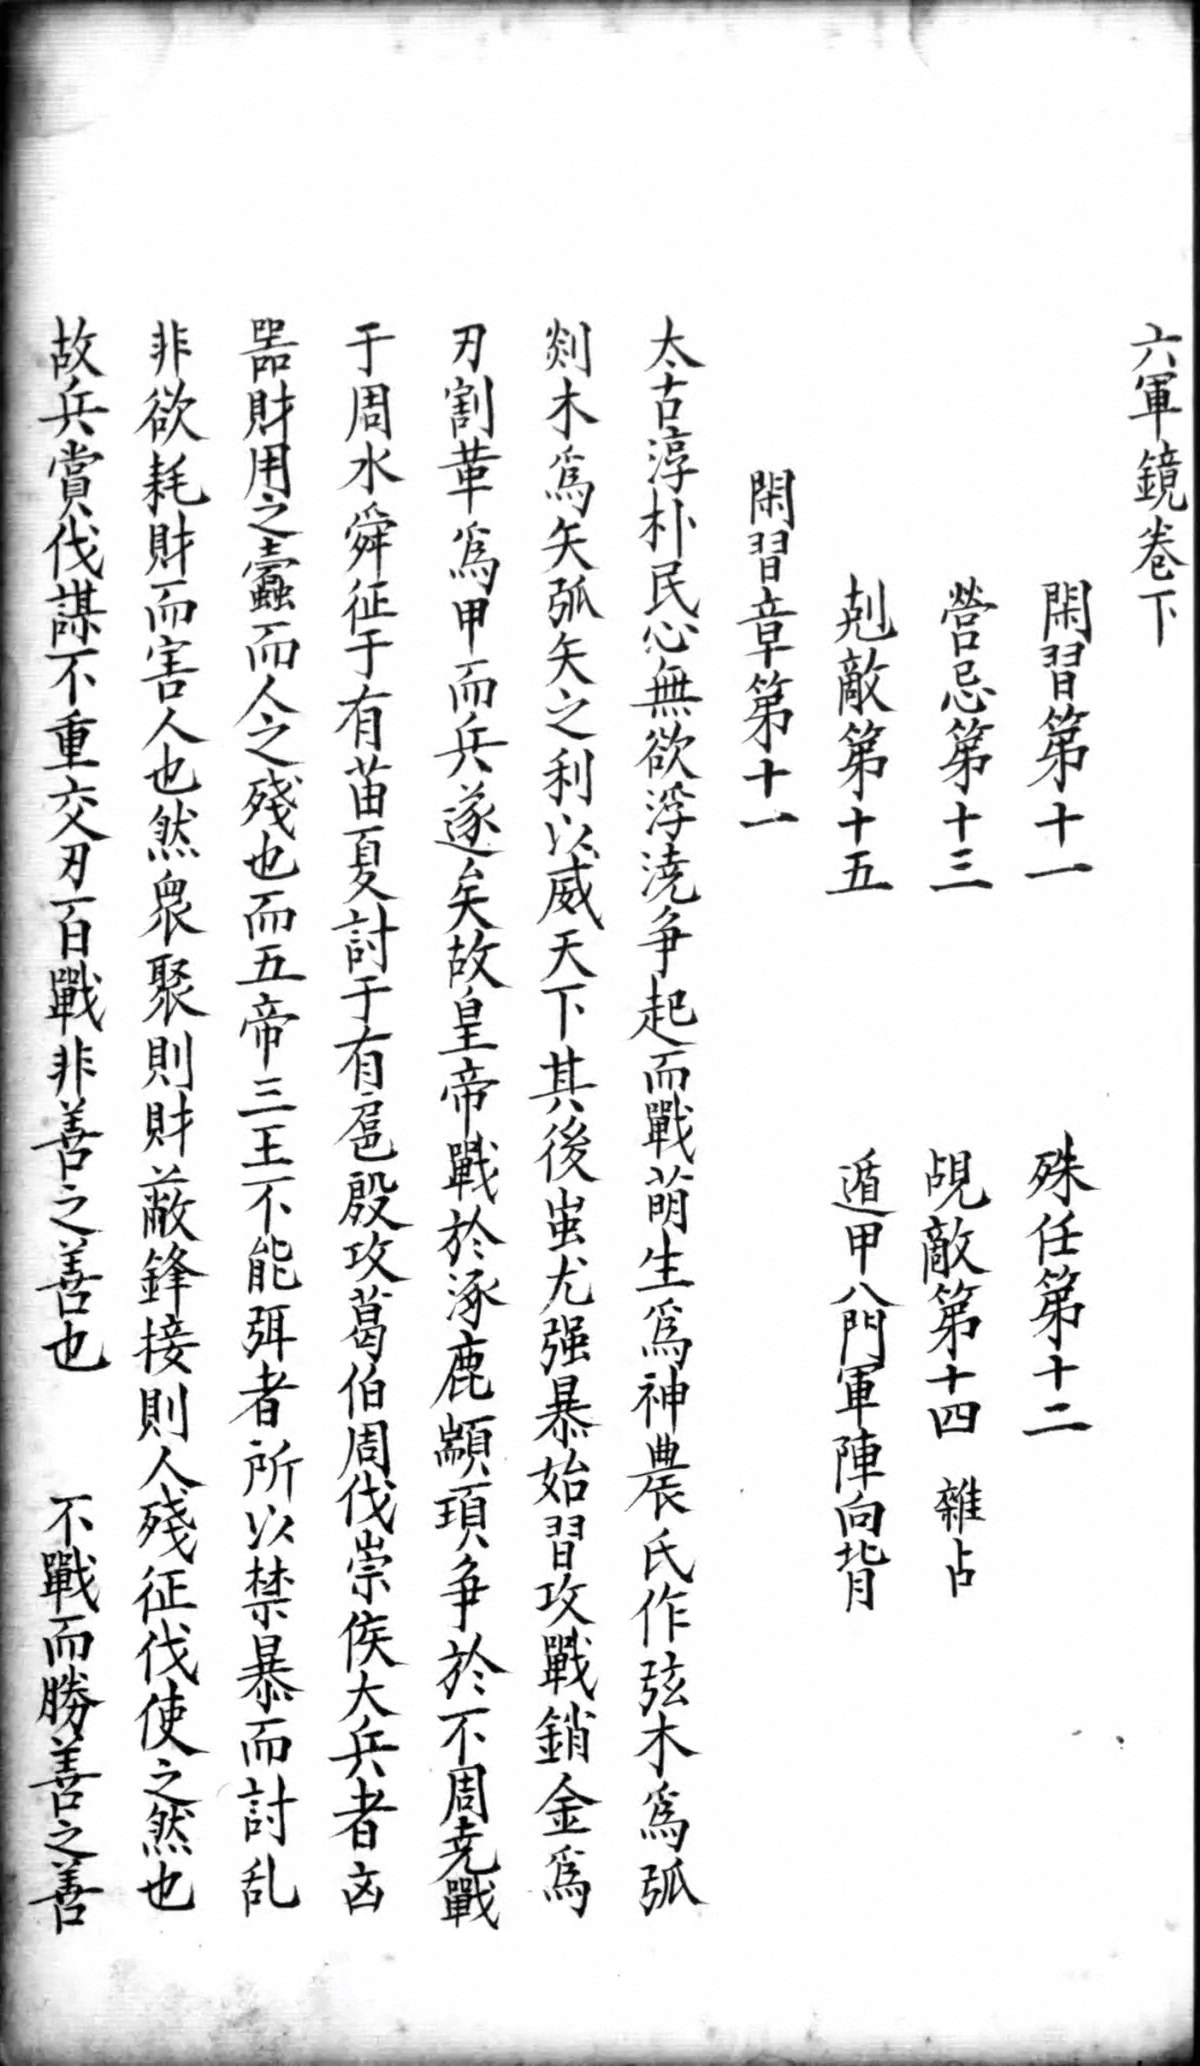 六軍鏡卷下
閑習第十一　殊任第十二
營忌第十三　覘敵第十四　雜占
剋敵第十五　遁甲八門軍陣向背
閑習章第十一
太古淳朴民心無欲浮澆争起而戰萌生爲神農氏作弦木爲弧
剡木爲矢弧矢之利以威天下其後蚩尤强暴始習攻戰銷金爲
刃割革爲甲而兵遂矣故皇帝戰於涿鹿顓頊争於不周堯戰
于周水舜征于有苗夏討于有扈殷攻葛伯周伐崇侯大兵者凶
器財用之蠹而人之殘也而五帝三王不能弭者所以禁暴而討乱
非欲耗財而害人也然衆聚則財蔽鋒接則人殘征伐使之然也
故兵賞伐謀不重交刃百戰非善之善也　不戰而勝善之善